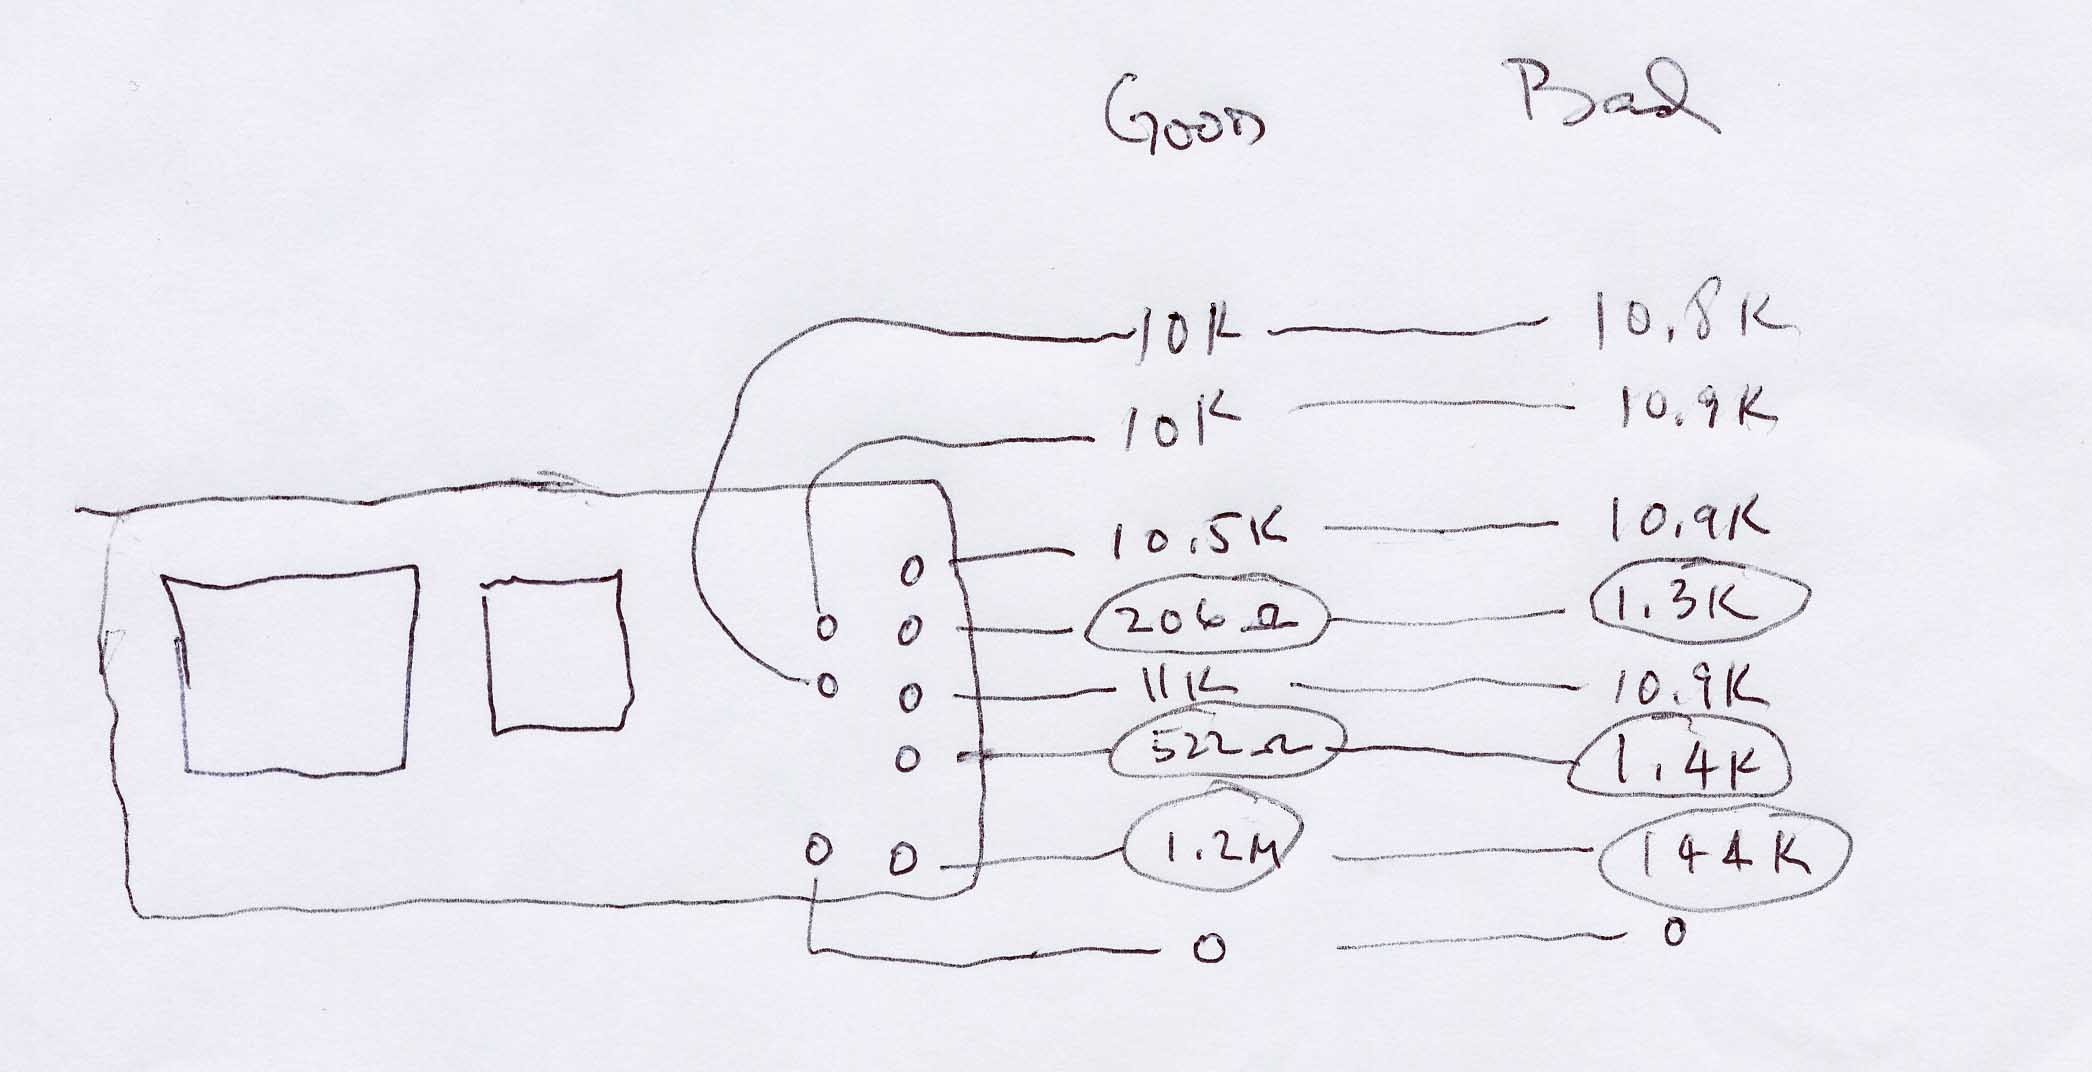 Good Bad
10K 10.8K
10K 10.9K
10.5K 10.9K
206Ω 1.3K
11K 10.9K
522Ω 1.4K
1.2M 144K
0 0